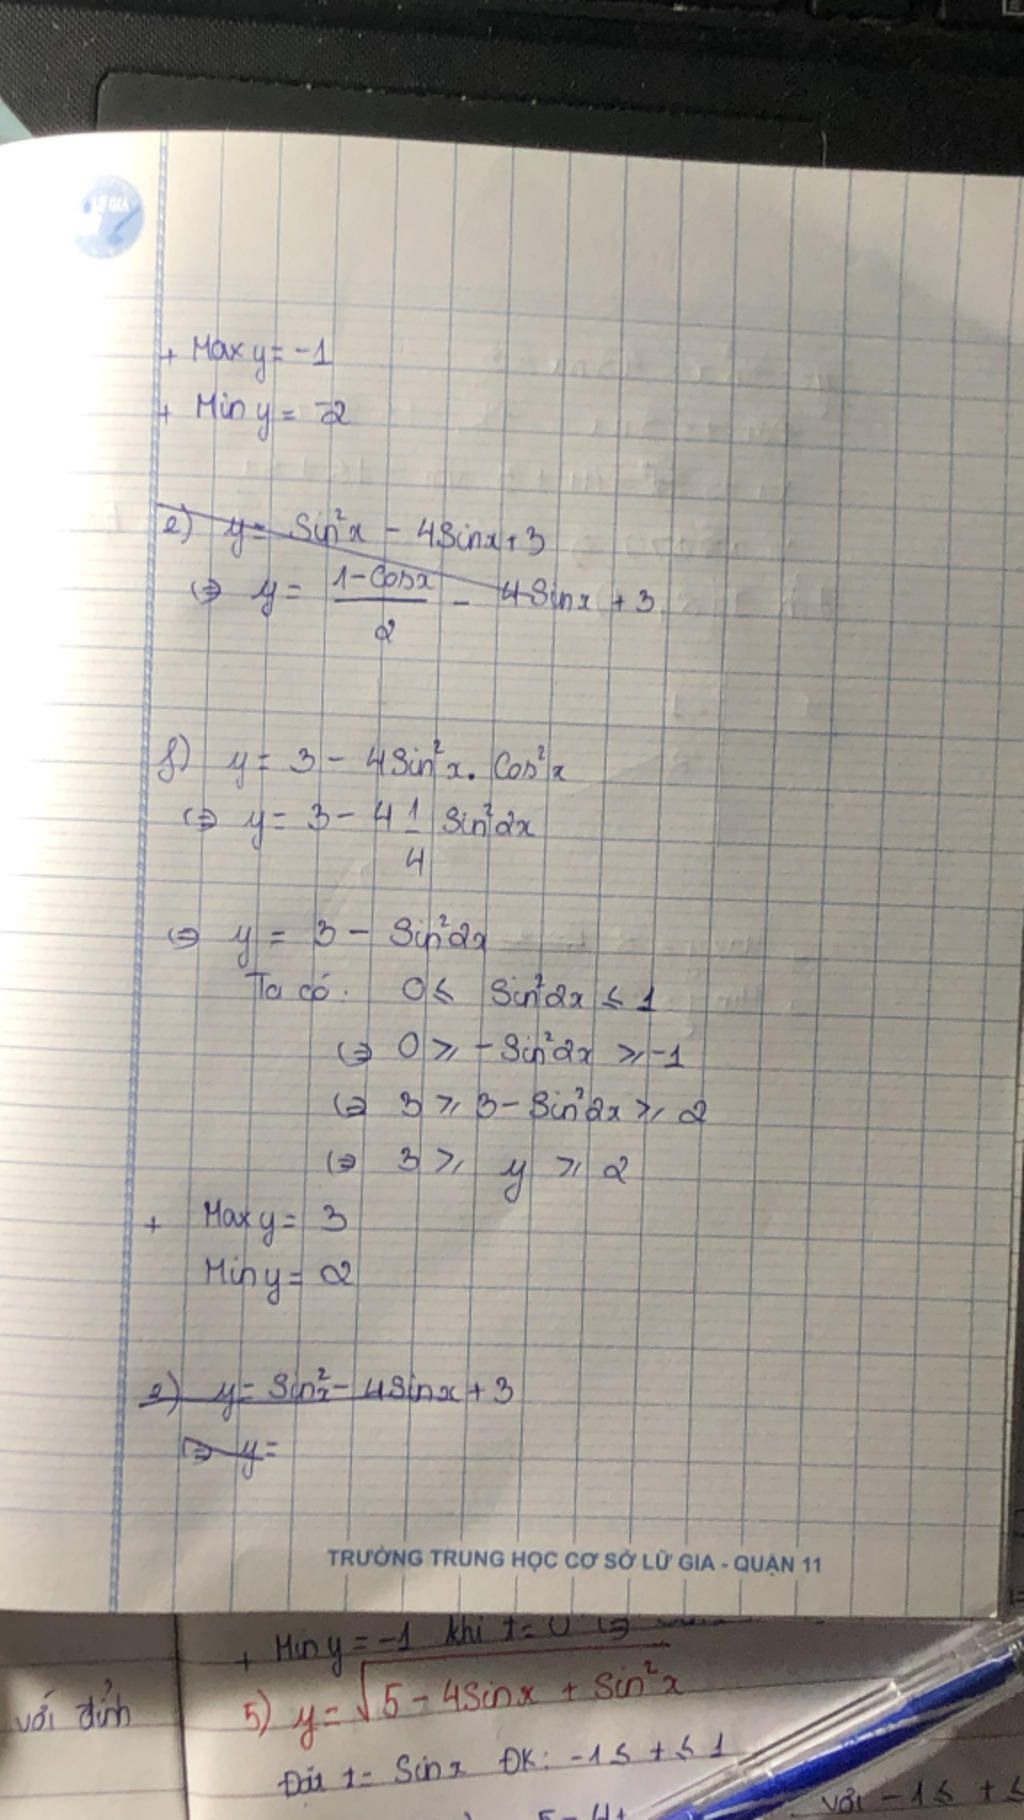 LỮ GIA
+ Max y = -1
+ Min y = -2
e) y = Sin²x - 4Sinx + 3
⇔ y = (1 - Cosx)/2 - 4Sinx + 3
f) y = 3 - 4Sin²x. Cos²x
⇔ y = 3 - 4 1/4 Sin²2x
⇔ y = 3 - Sin²2x
Ta có: 0 ≤ Sin²2x ≤ 1
⇔ 0 ≥ -Sin²2x ≥ -1
⇔ 3 ≥ 3 - Sin²2x ≥ 2
⇔ 3 ≥ y ≥ 2
+ Max y = 3
Min y = 2
e) y = Sin²x - 4Sinx + 3
⇔ y =
TRƯỜNG TRUNG HỌC CƠ SỞ LỮ GIA - QUẬN 11
+ Min y = -1 khi t = 0 ⇔
5) y = √(5 - 4Sinx + Sin²x)
với đỉnh
Đặt t = Sinx ĐK: -1 ≤ t ≤ 1
5 - 4t
với -1 ≤ t ≤